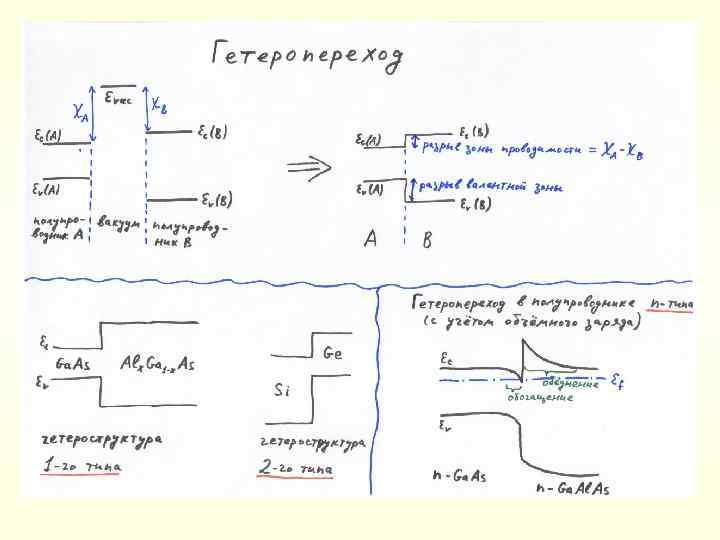 Гетеропереход
εvac
χA
χB
εc(A)
εc(B)
εv(A)
εv(B)
полупро-
водник A
вакуум
полупровод-
ник B
⇒
εc(A)
εc(B)
разрыв зоны проводимости = χA-χB
εv(A)
разрыв валентной зоны
εv(B)
A
B
εc
GaAs
AlxGa1-xAs
εv
гетероструктура
1-го типа
Ge
Si
гетероструктура
2-го типа
Гетеропереход в полупроводнике n-типа
(с учётом объёмного заряда)
εc
обеднение
εf
обогащение
εv
n-GaAs
n-GaAlAs